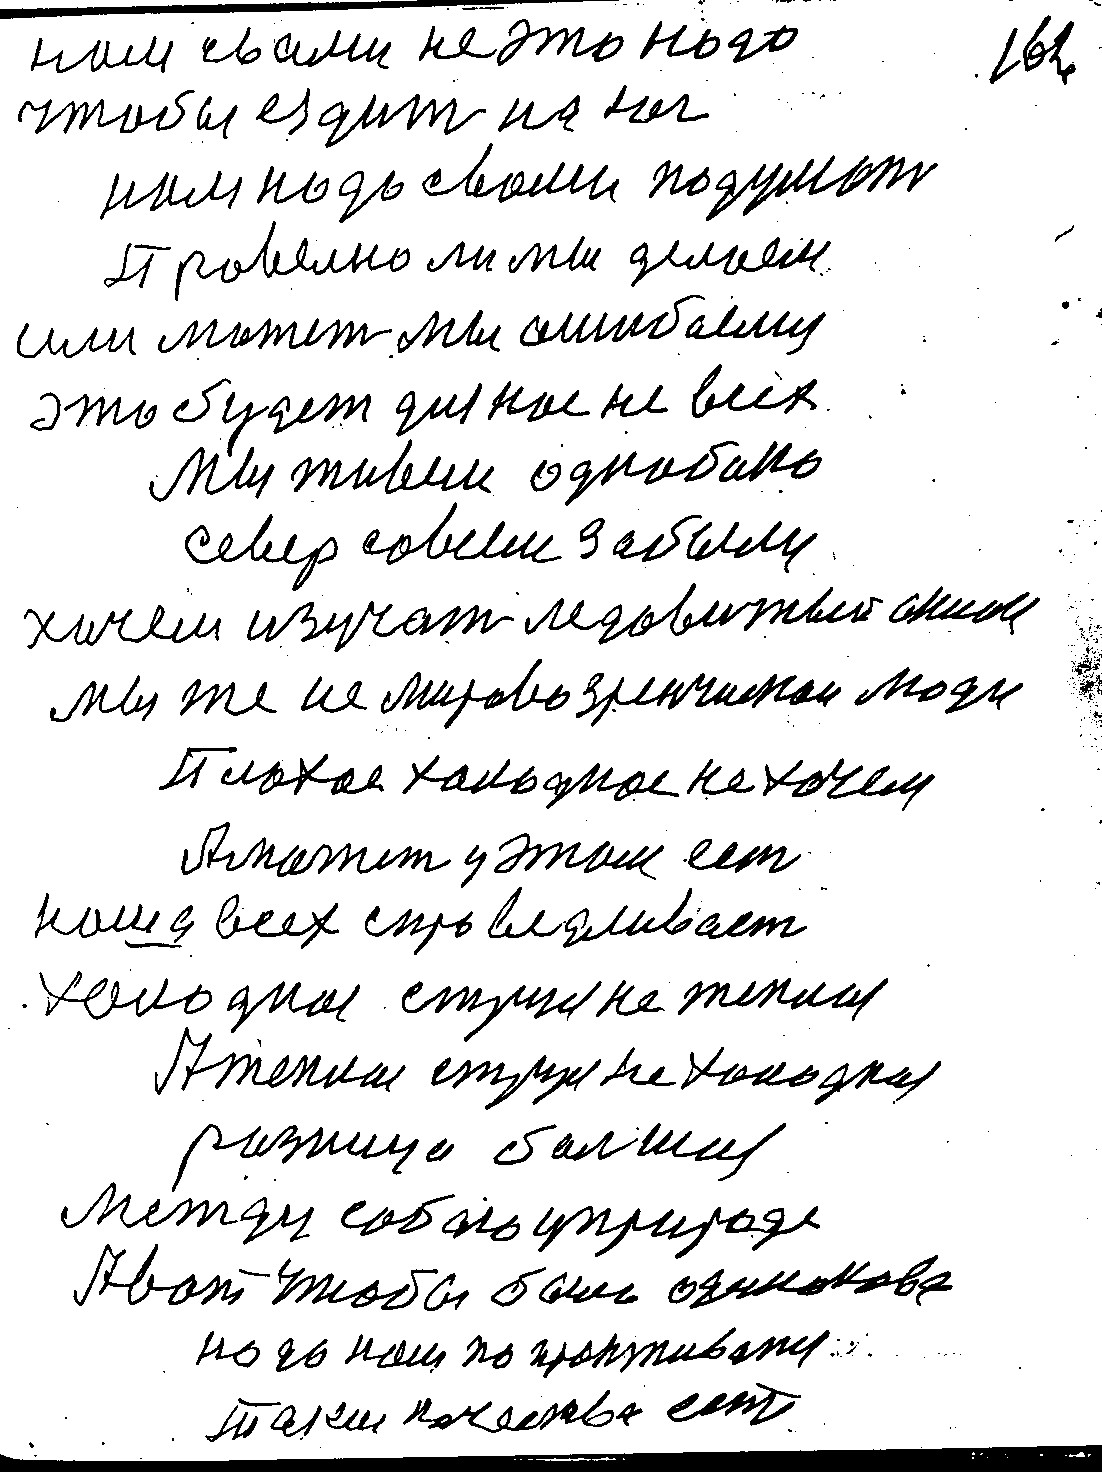 нам свами не это надо 162
чтобы ездит на юг
нам надо свами подумат
Провелно ли мы делаем
или может мы ошибаемц
это будет для нас не всех
Мы живем однобоко
север совсем забыли
хочем изучат ледовитый океан
мы же не мировозренчиской люди
Плохое холодное не хочем
А может у этом ест
наша всех справедливает
холодная струя не теплая
А теплая струя не холодная
разница болшая
между собою уприроде
А вот чтобы было одинокова
надо нам попрактиковат
Такие качества ест